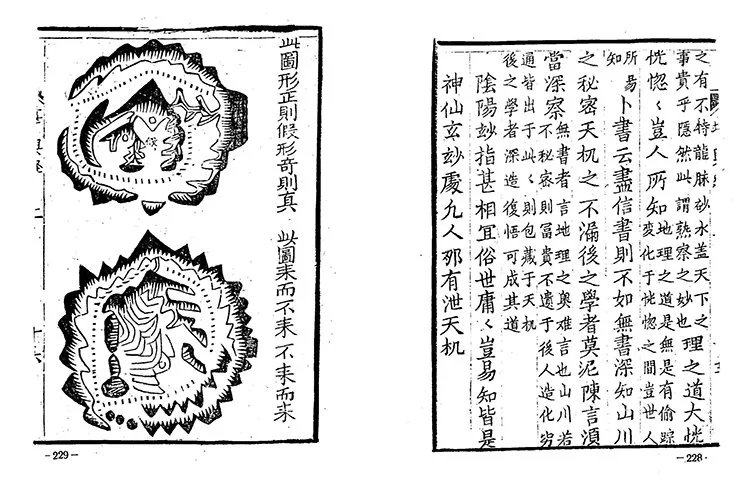 之有不特龍脉砂水蓋天下之
事貴乎隱然此謂熟察之妙也
理之道大恍
恍惚〻豈人所知
地理之道是無是有偷踪
変化于恍惚之間豈世人
所易
知
卜書云盡信書則不如無書深知山川
之秘密天机之不漏後之學者莫泥陳言須
當深察
無書者言地理之奥难言也山川若
不秘密則冨貴不遺于後人造化穷
通皆出于此〻則包藏于天机
後之學者深造後悟可成其道
陰陽玅指甚相宜俗世庸〻豈易知皆是
神仙玄玅處凢人那有泄天机
·228·
此圖形正則假形奇則真 此圖来而不来不来而来
-229-